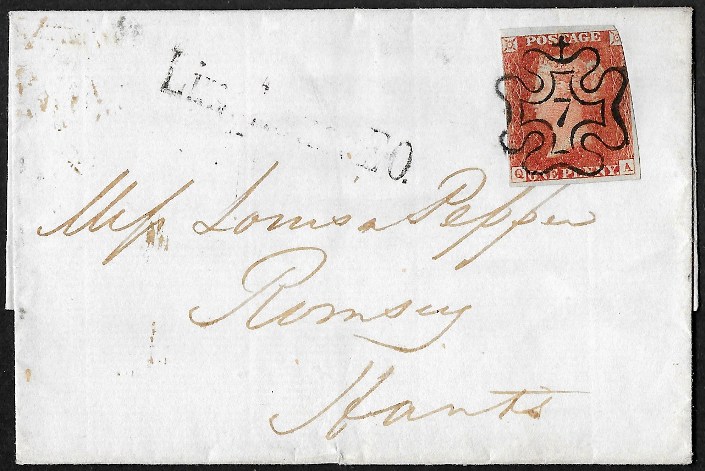 POSTAGE
7
Q ONE PENNY A
Miss Louisa Pepper
Romsey
Hants